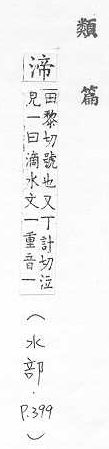 類篇
渧
田黎切號也又丁計切泣
皃一曰滴水文一重音一
（水部．P.399）